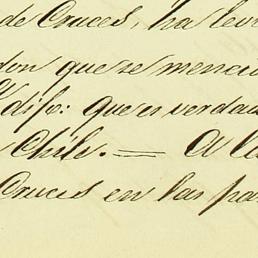 de Cruces, ha lev
don que se menci
dije: que es verdad
Chile. — A la
Cruces en las pa